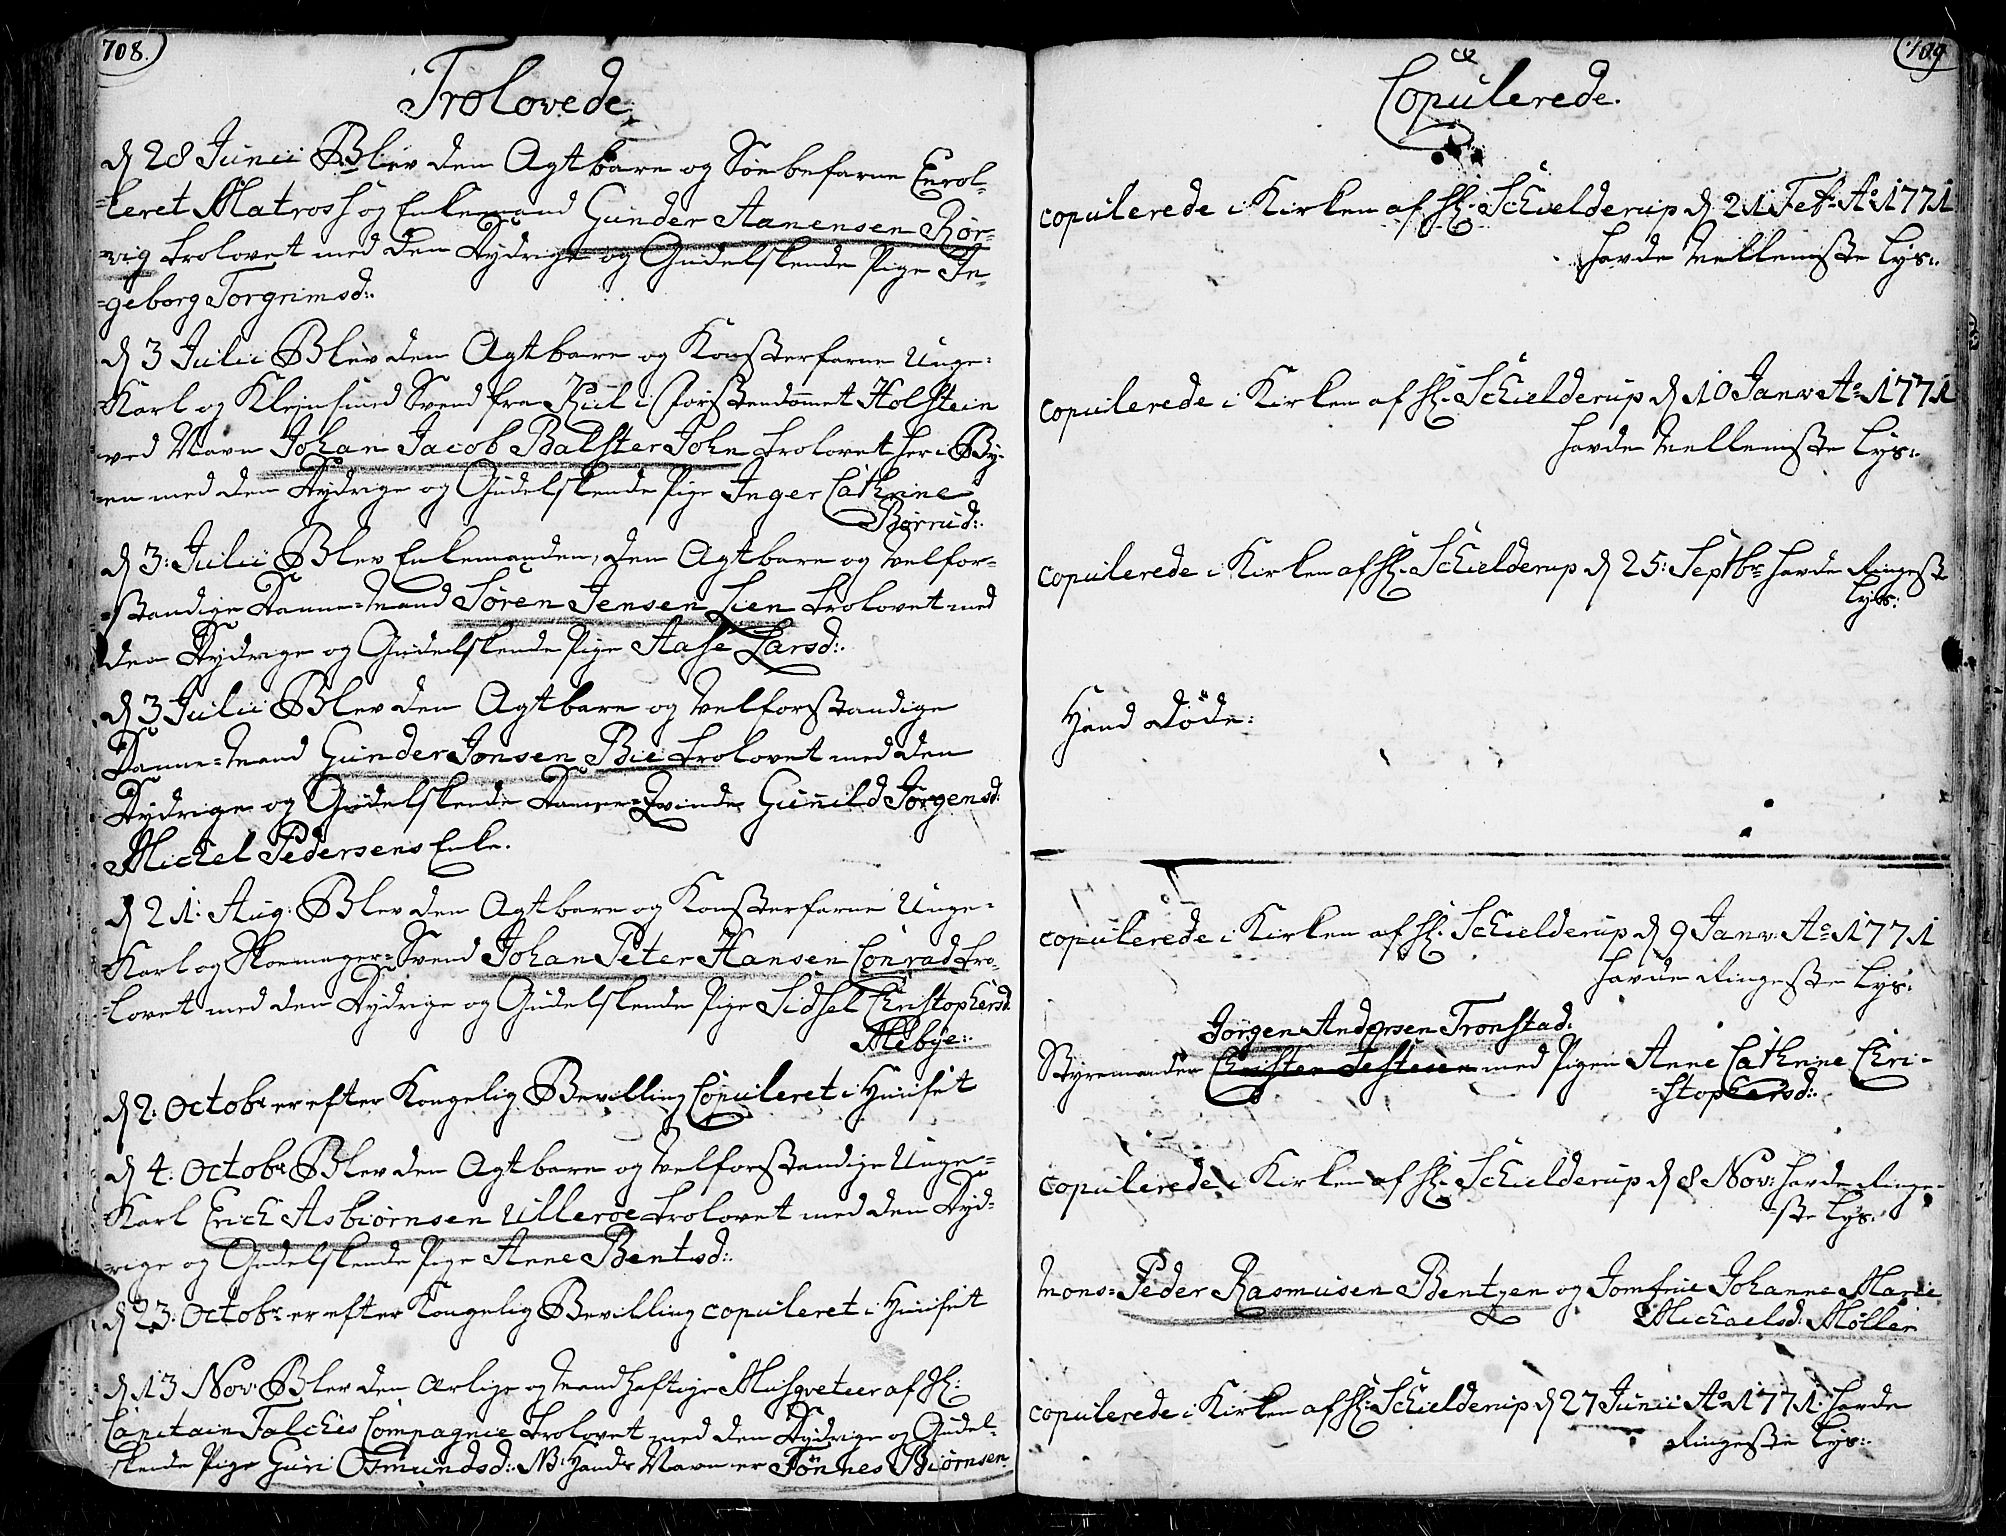 708.
Trolovede.
d 28 Junii Blev den Agtbare og Søebefarne Enrol-
-leret Matros og Enkemand Gunder Aanensen Rør-
-vig trolovet med den Dydrige og Gudelskende Pige In-
-geborg Torgrimsd:.
d 3 Julii Blev den Agtbare og Konsterfarne Unge-
Karl og Kleinsmed Svend fra Kiil i Førstendømet Holstein
ved Navn Johan Jacob Balster John trolovet her i By-
-en med den Dydrige og Gudelskende Pige Inger Cathrine
Børrud:.
d 3: Julii Blev Enkemanden, den Agtbare og Velfor-
-standige Danne-Mand Søren Jensen Lien trolovet med
den Dydrige og Gudelskende Pige Aase Larsd:.
d 3 Julii Blev den Agtbare og Velforstandige
Danne-Mand Gunder Jonsen Bie trolovet med den
Dydrige og Gudelskende Danne-Qvinde Gunild Jørgensd:
Michel Pedersens Enke.
d 21: Aug: Blev den Agtbare og Konsterfarne Unge-
Karl og Skoemager-Svend Johan Peter Hansen Conrad tro-
-lovet med den Dydrige og Gudelskende Pige Sidsel Christophersd.
Mebye:.
d 2: Octobr er efter Kongelig Bevilling Copuleret i Huuset
d 4: Octobr Blev den Agtbare og Velforstandige Unge-
Karl Erich Asbiørnsen Ulleroe trolovet med den Dyd-
-rige og Gudelskende Pige Anne Bentsd:.
d 23: Octobr er efter Kongelig Bevilling copuleret i Huuset
d 13 Nov: Blev den Ærlige og Mandhaftige Musqveteer af H:
Capitain Falches Compagnie trolovet med den Dydrige og Gudel-
skende Pige Guri Osmundsd:. NB: Hands Navn er Tønnes Biørnsen.
709
Copulerede.
copulerede i Kirken af H: Schielderup d 21 Feb: Ao 1771
havde Mellemste Lys:.
copulerede i Kirken af H: Schielderup d 10 Janv: Ao 1771
havde Mellemste Lys:.
copulerede i Kirken af H: Schielderup d 25: Septbr havde Ringeste
Lys:
Hand Døde:
copulerede i Kirken af H: Schielderup d 9 Janv: Ao 1771
havde Ringeste Lys:
Jørgen Andersen Tronstad:
Styrmanden Christen med Pigen Anne Cathrine Chri-
-stophersd:.
copulerede i Kirken af H: Schielderup d 8 Nov: havde Ringe-
-ste Lys:
Mons: Peder Rasmusen Bentzen og Jomfrue Johanne Marie
Michaelsd: Møller
copulerede i Kirken af H: Schielderup d 27 Junii Ao 1771. havde
Ringeste Lys:.